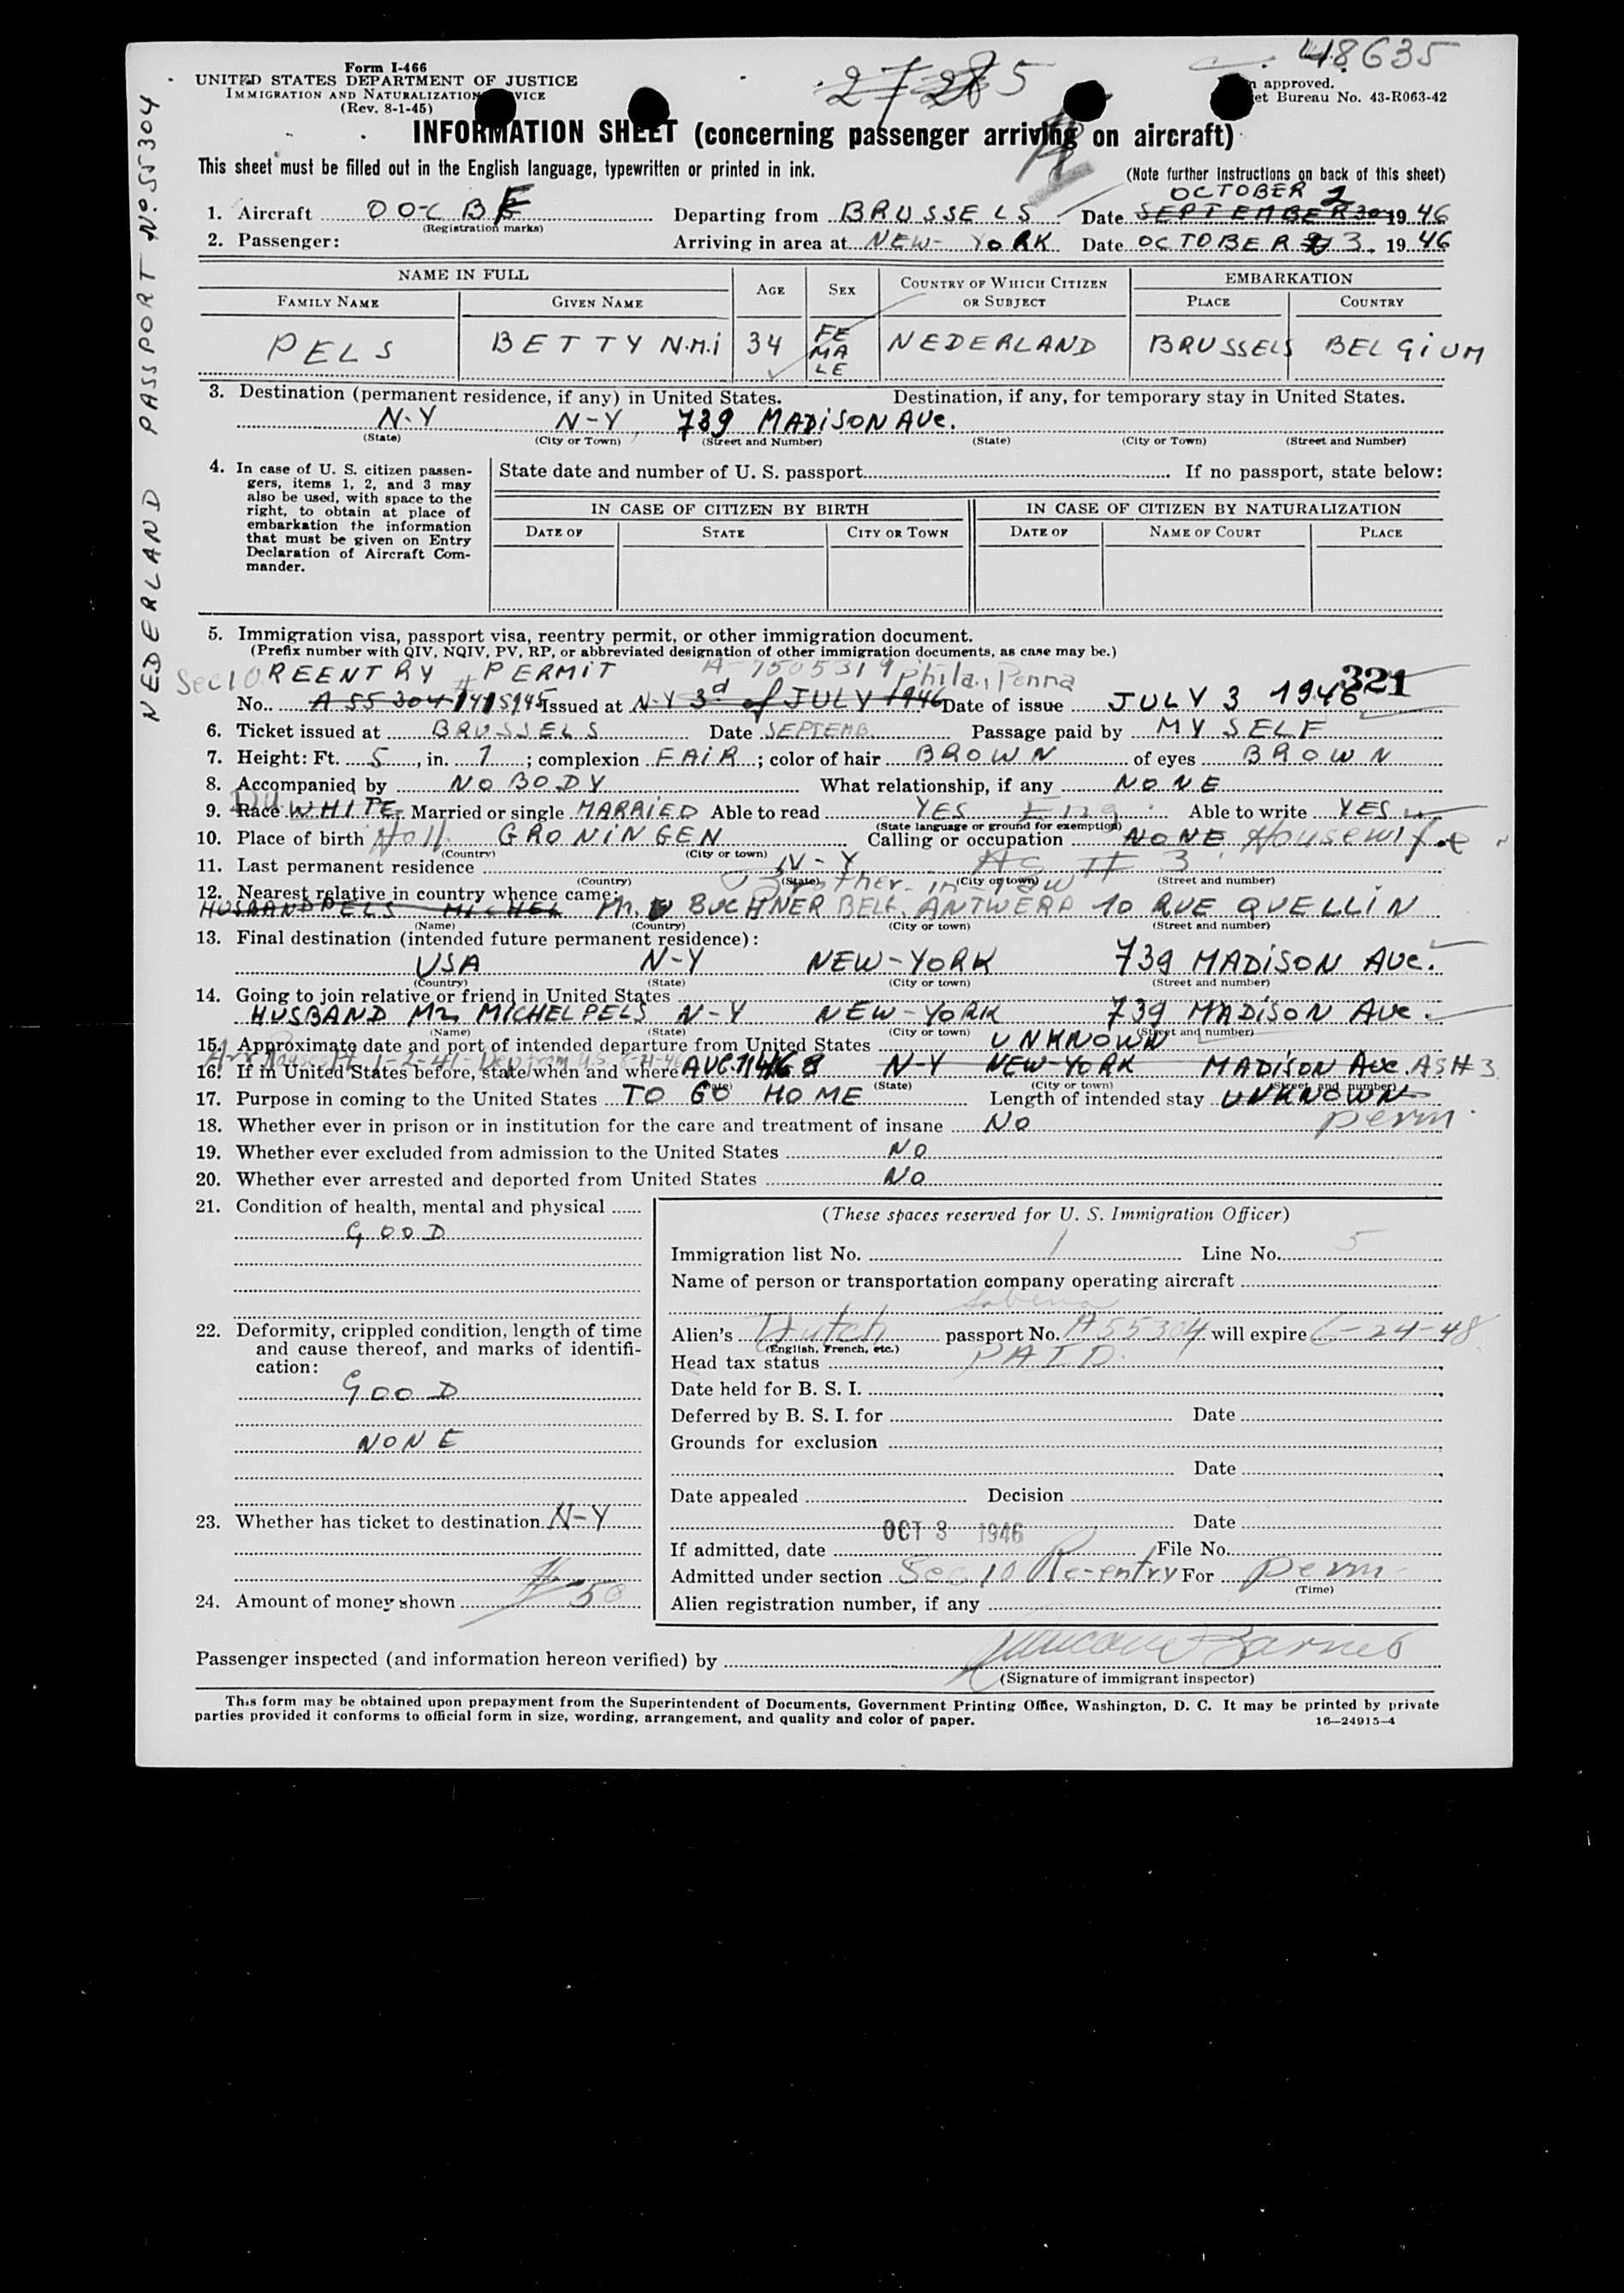 48635
27285
Form I-466
UNITED STATES DEPARTMENT OF JUSTICE
IMMIGRATION AND NATURALIZATION
(Rev. 8-1-45)
approved.
Bureau No. 43-R063-42
INFORMATION SHEET (concerning passenger arriving on aircraft)
This sheet must be filled out in the English language, typewritten or printed in ink.
(Note further instructions on back of this sheet)
NEDERLAND PASSPORT No. 55304
OCTOBER 2
1. Aircraft OO-CBE Departing from BRUSSELS Date SEPTEMBER 30 1946
(Registration marks)
2. Passenger: Arriving in area at NEW-YORK Date OCTOBER 3. 1946
NAME IN FULL AGE SEX COUNTRY OF WHICH CITIZEN OR SUBJECT EMBARKATION
FAMILY NAME GIVEN NAME PLACE COUNTRY
PELS BETTY N.M.i 34 FEMALE NEDERLAND BRUSSELS BELGIUM
3. Destination (permanent residence, if any) in United States. Destination, if any, for temporary stay in United States.
N-Y N-Y 739 MADISON AVe.
(State) (City or Town) (Street and Number) (State) (City or Town) (Street and Number)
4. In case of U. S. citizen passen-
gers, items 1, 2, and 3 may
also be used, with space to the
right, to obtain at place of
embarkation the information
that must be given on Entry
Declaration of Aircraft Com-
mander.
State date and number of U. S. passport If no passport, state below:
IN CASE OF CITIZEN BY BIRTH IN CASE OF CITIZEN BY NATURALIZATION
DATE OF STATE CITY OR TOWN DATE OF NAME OF COURT PLACE
5. Immigration visa, passport visa, reentry permit, or other immigration document.
(Prefix number with QIV, NQIV, PV, RP, or abbreviated designation of other immigration documents, as case may be.)
Sec 10 REENTRY PERMIT A-7505319 Phila., Penna 321
No. A 55304 1415945 Issued at N-Y 3d of JULY 1946 Date of issue JULY 3 1946
6. Ticket issued at BRUSSELS Date SEPTEMB. Passage paid by MYSELF
7. Height: Ft. 5, in. 1; complexion FAIR; color of hair BROWN of eyes BROWN
8. Accompanied by NOBODY What relationship, if any NONE
9. Race WHITE Married or single MARRIED Able to read YES Eng Able to write YES
(State language or ground for exemption)
10. Place of birth Holl. GRONINGEN Calling or occupation NONE Housewife
(Country) (City or town)
11. Last permanent residence N-Y As # 3
(Country) (State) (City or town) (Street and number)
Brother-in-law
12. Nearest relative in country whence came:
HUSBAND PELS MICHEL Mr. BUCHNER BELG. ANTWERP 10 RUE QUELLIN
(Name) (Country) (City or town) (Street and number)
13. Final destination (intended future permanent residence):
USA N-Y NEW-YORK 739 MADISON AVe.
(Country) (State) (City or town) (Street and number)
14. Going to join relative or friend in United States
HUSBAND Mr. MICHEL PELS N-Y NEW-YORK 739 MADISON AVe.
(Name) (State) (City or town) (Street and number)
15. Approximate date and port of intended departure from United States UNKNOWN
16. If in United States before, state when and where AUG. N-Y NEW-YORK MADISON AVe. AS# 3
(State) (City or town) (Street and number)
17. Purpose in coming to the United States TO GO HOME Length of intended stay UNKNOWN
perm
18. Whether ever in prison or in institution for the care and treatment of insane NO
19. Whether ever excluded from admission to the United States NO
20. Whether ever arrested and deported from United States NO
21. Condition of health, mental and physical
GOOD
22. Deformity, crippled condition, length of time
and cause thereof, and marks of identifi-
cation:
GOOD
NONE
23. Whether has ticket to destination N-Y
24. Amount of money shown $50
(These spaces reserved for U. S. Immigration Officer)
Immigration list No. 1 Line No. 5
Name of person or transportation company operating aircraft
Sabena
Alien's Dutch passport No. A55304 will expire 6-24-48
(English, French, etc.)
Head tax status PAID
Date held for B. S. I.
Deferred by B. S. I. for Date
Grounds for exclusion
Date
Date appealed Decision
Date
OCT 3 1946
If admitted, date File No.
Admitted under section Sec 10 Re-entry For perm
(Time)
Alien registration number, if any
Passenger inspected (and information hereon verified) by Barnes
(Signature of immigrant inspector)
This form may be obtained upon prepayment from the Superintendent of Documents, Government Printing Office, Washington, D. C. It may be printed by private
parties provided it conforms to official form in size, wording, arrangement, and quality and color of paper.
16—24915-4